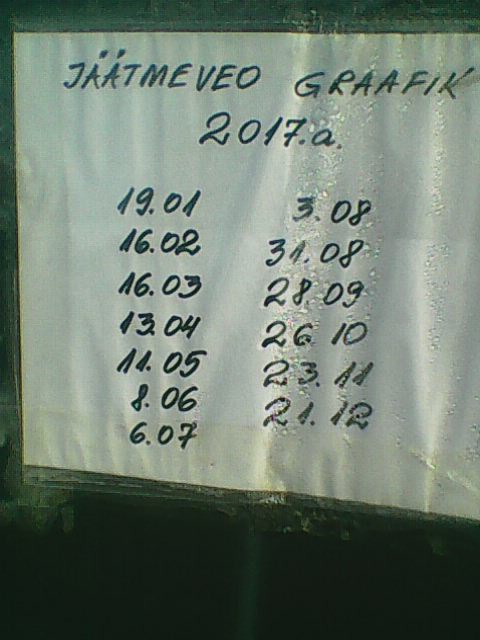 JÄÄTMEVEO GRAAFIK
2017.a.
19.01
16.02
16.03
13.04
11.05
8.06
6.07
3.08
31.08
28.09
26.10
23.11
21.12